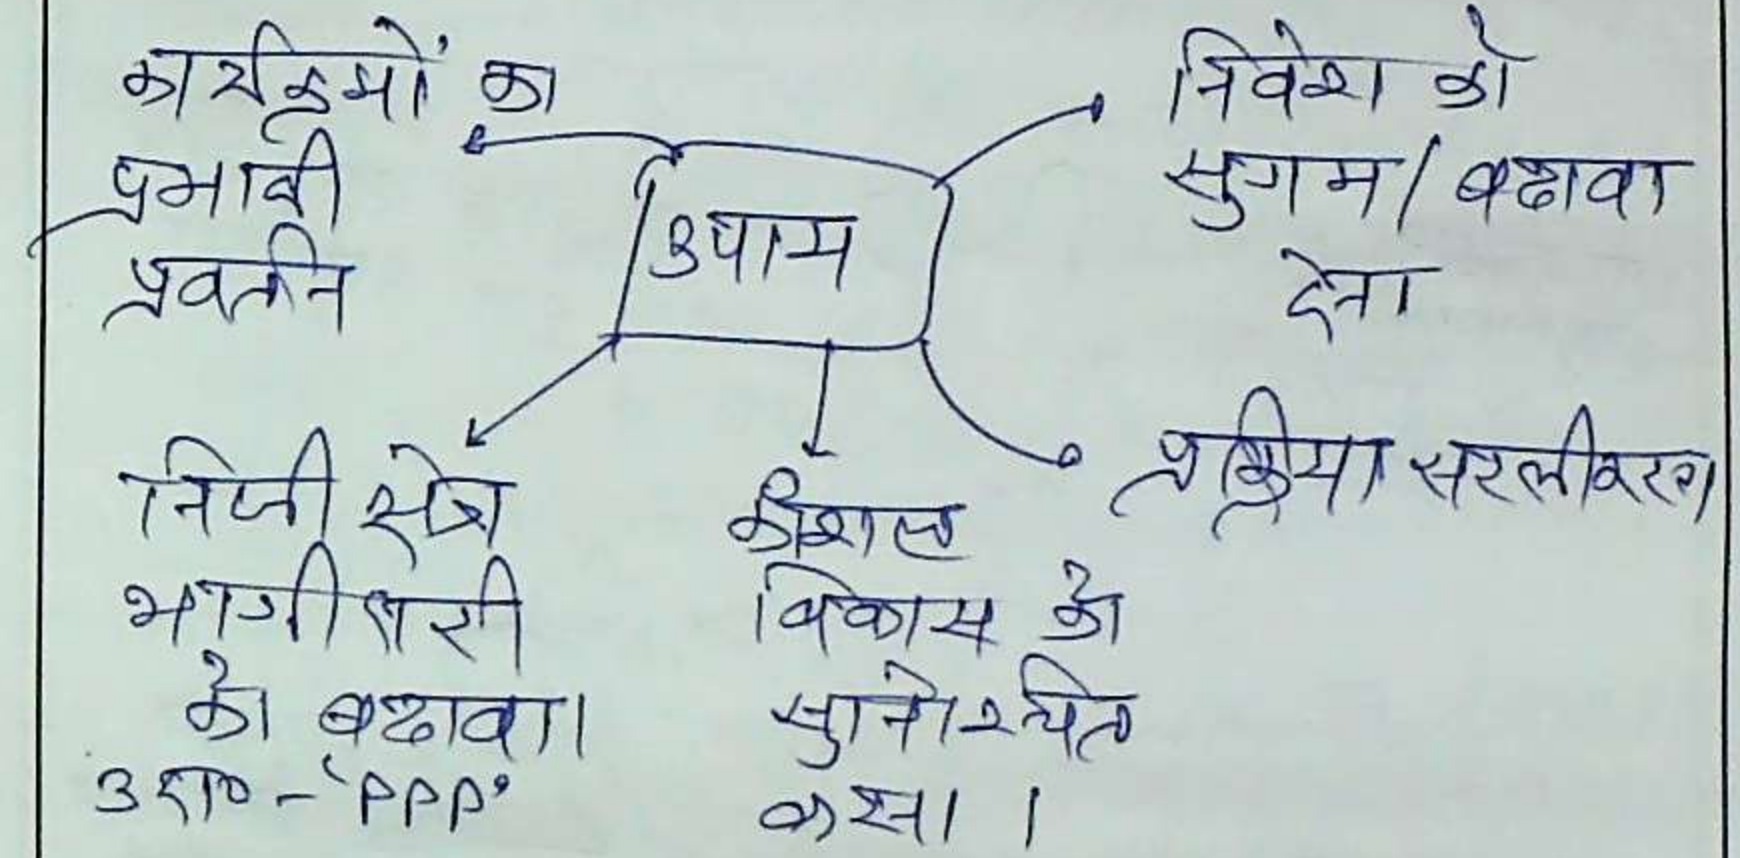 कार्यक्रमों का
प्रभावी
प्रवर्तन
उपाय
निवेश को
सुगम/बढावा
देना
प्रक्रिया सरलीकरण
निजी क्षेत्र
भागीदारी
को बढावा।
उदा० - 'PPP'
कौशल
विकास को
सुनिश्चित
करना।